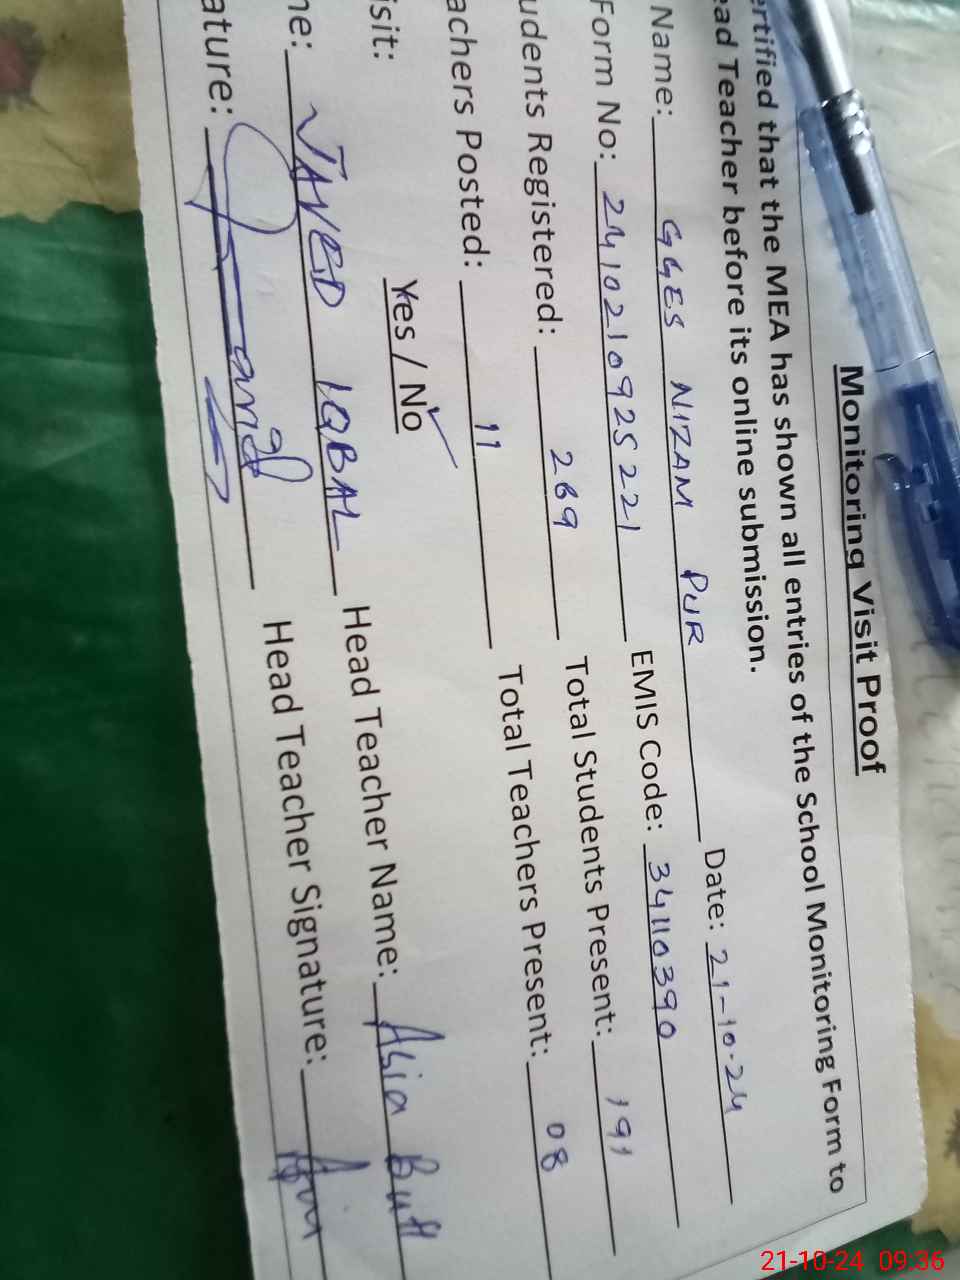 Monitoring Visit Proof
ertified that the MEA has shown all entries of the School Monitoring Form to
ead Teacher before its online submission.
Name: GGES NIZAM PUR Date: 21-10-24
Form No: 241021092522​1 EMIS Code: 34110390
udents Registered: 269 Total Students Present: 191
achers Posted: 11 Total Teachers Present: 08
isit: Yes / No
ne: JAVED IQBAL Head Teacher Name: Asia Butt
ature: Head Teacher Signature:
21-10-24 09:36